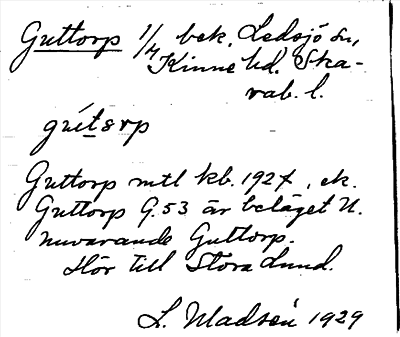 Guttorp 1/4 bek. Ledsjö sn,
Kinne hd. Ska-
rab. l.
Guttorp mtl kb. 1927, ek.
Guttorp G.53 är beläget N.
nuvarande Guttorp.
Hör till Stora Lund.
L. Madsén 1929